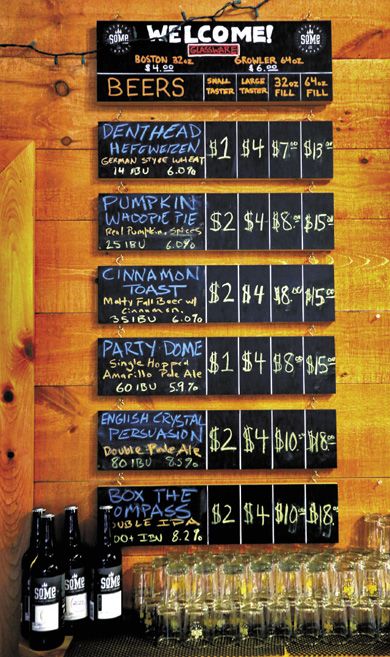 WELCOME!
SOME
SOME
GLASSWARE
BOSTON 32oz GROWLER 64oz
$4.00 $6.00
BEERS SMALL TASTER LARGE TASTER 32oz FILL 64oz FILL
DENTHEAD
HEFEWEIZEN $1 $4 $7.00 $13.00
GERMAN STYLE WHEAT
14 IBU 6.0%
PUMPKIN
WHOOPIE PIE $2 $4 $8.00 $15.00
Real Pumpkin, Spices
25 IBU 6.0%
CINNAMON
TOAST $2 $4 $8.00 $15.00
Malty Fall Beer w/
Cinnamon
35 IBU 6.0%
PARTY DOME
Single Hopped $1 $4 $8.00 $15.00
Amarillo Pale Ale
60 IBU 5.9%
ENGLISH CRYSTAL
PERSUASION $2 $4 $10.00 $18.00
Double Pale Ale
80 IBU 8.5%
BOX THE
COMPASS $2 $4 $10.00 $18.00
DOUBLE IPA
100+ IBU 8.2%
SOME
SOME
SOME